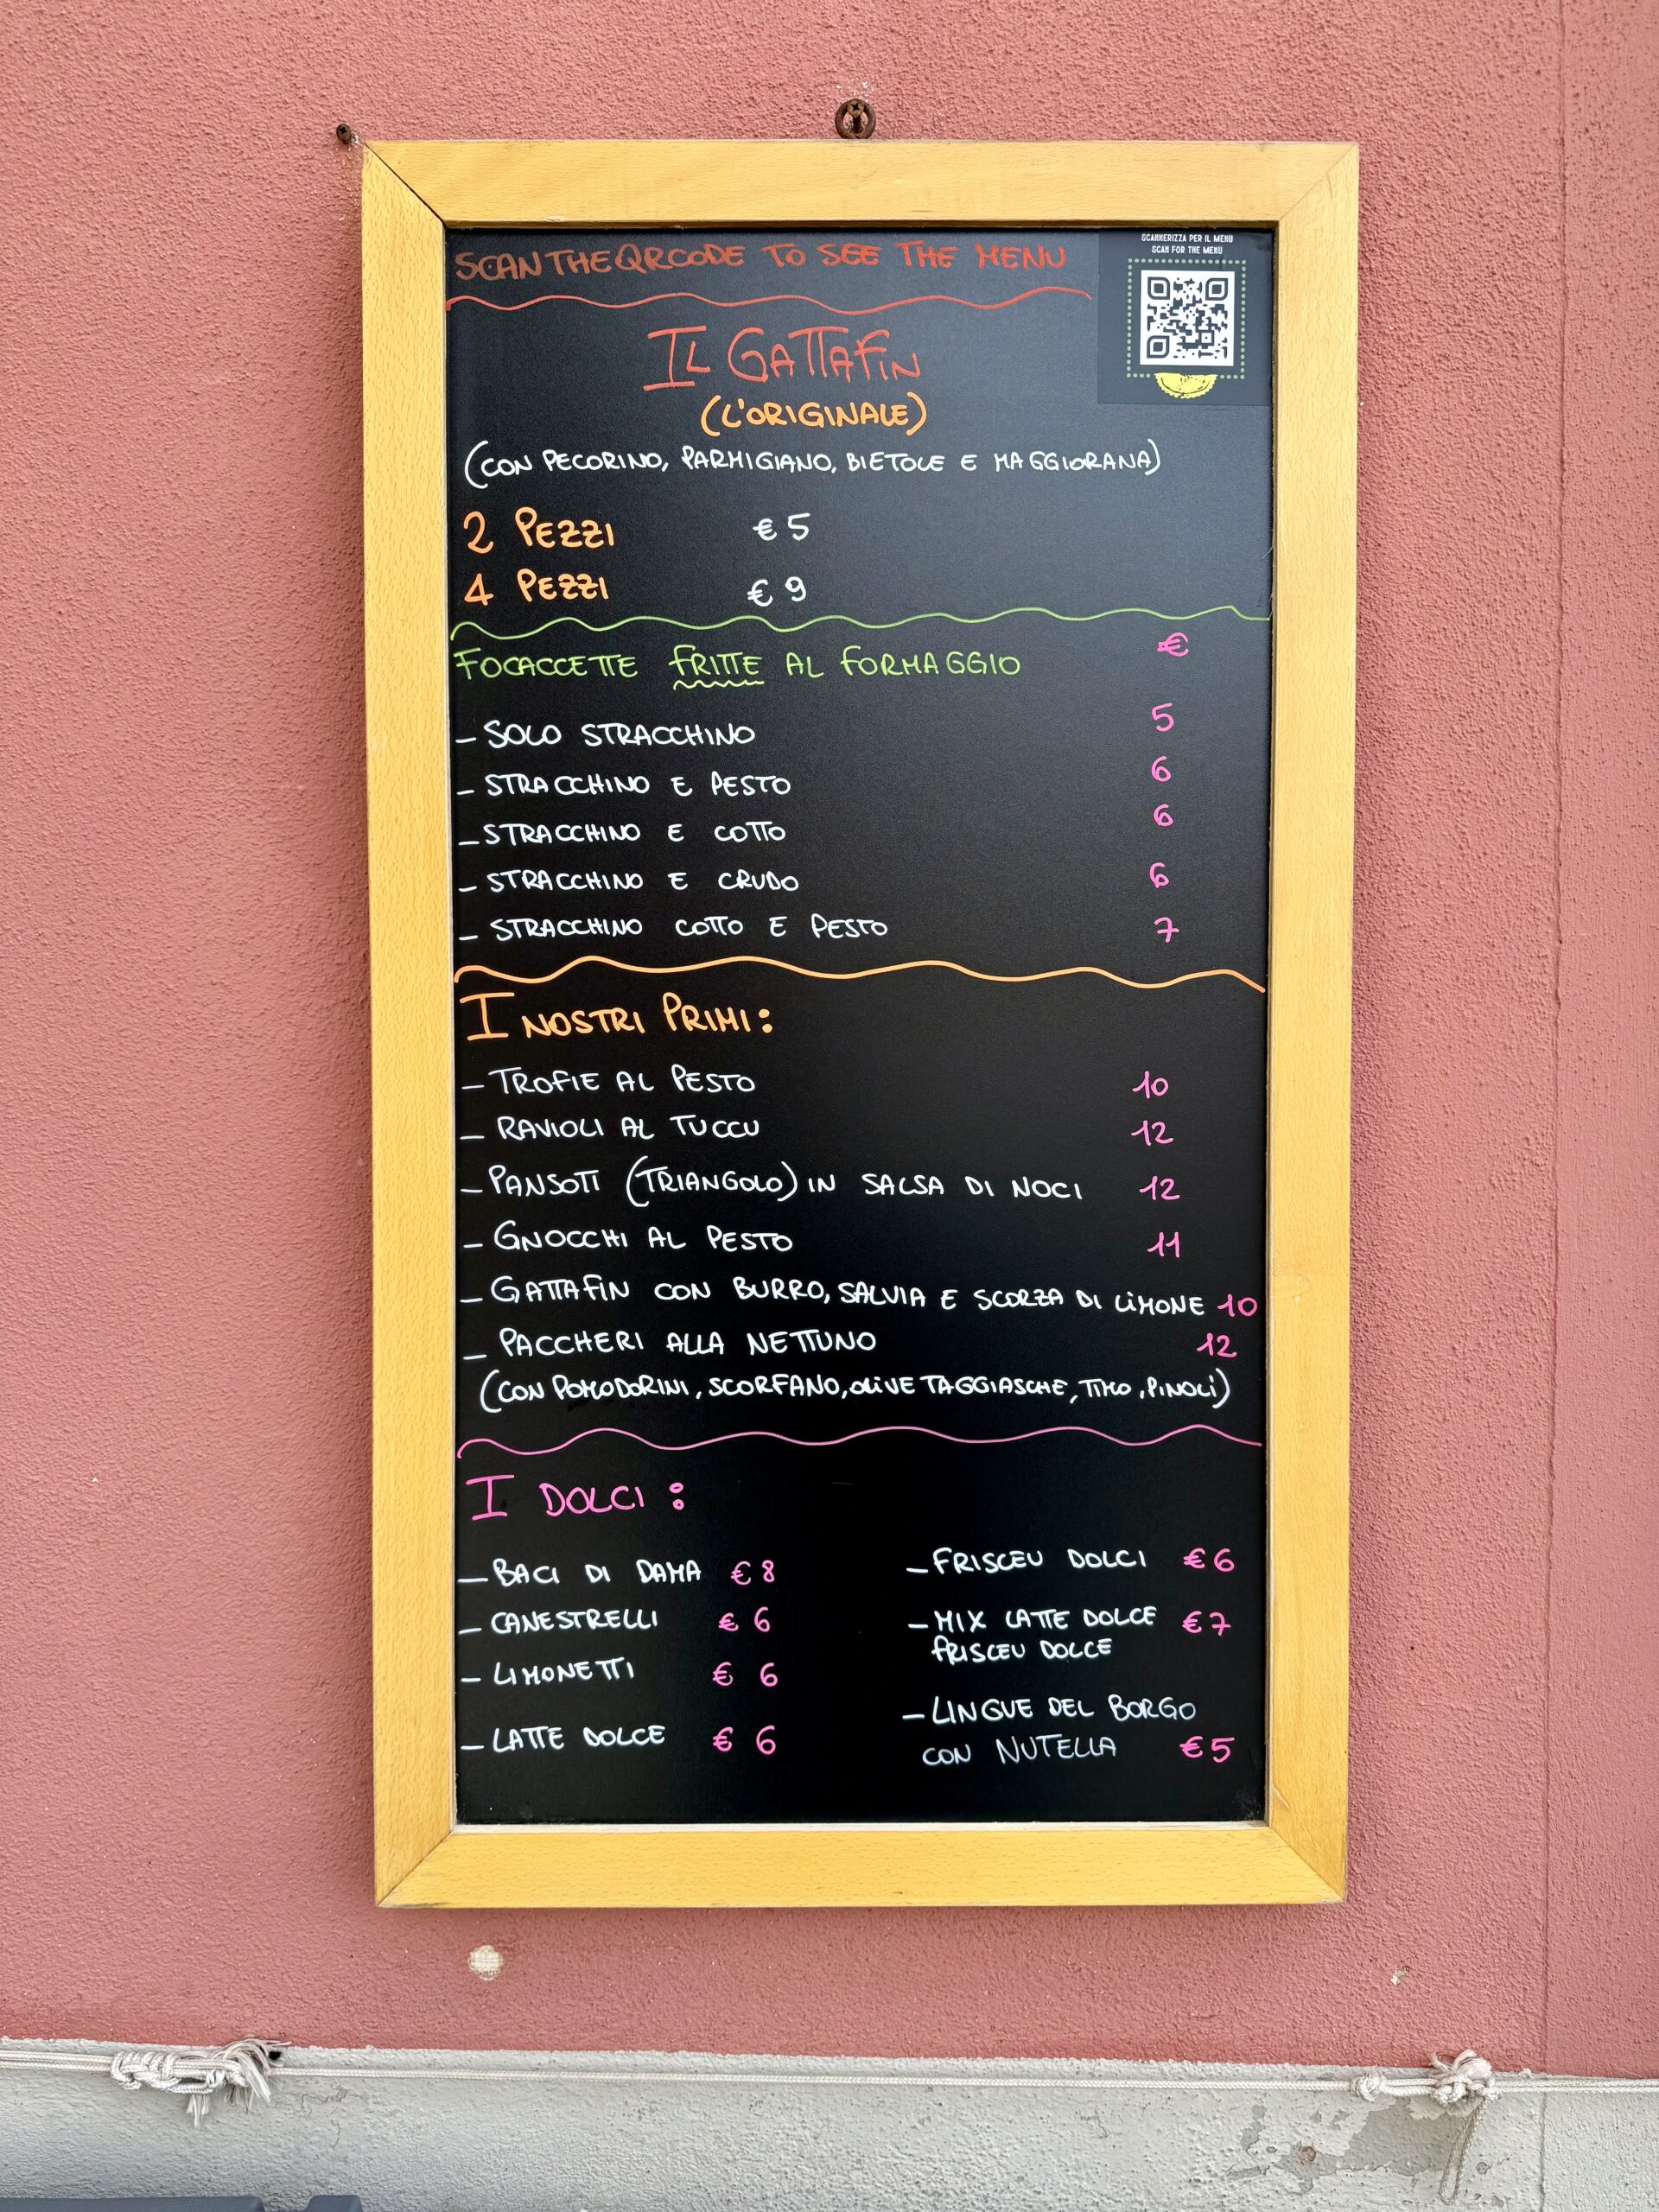 SCAN THE QR CODE TO SEE THE MENU
SCANNERIZZA PER IL MENU
SCAN FOR THE MENU
IL GATTAFIN
(L'ORIGINALE)
(CON PECORINO, PARMIGIANO, BIETOLE E MAGGIORANA)
2 PEZZI € 5
4 PEZZI € 9
FOCACCETTE FRITTE AL FORMAGGIO €
- SOLO STRACCHINO 5
- STRACCHINO E PESTO 6
- STRACCHINO E COTTO 6
- STRACCHINO E CRUDO 6
- STRACCHINO COTTO E PESTO 7
I NOSTRI PRIMI:
- TROFIE AL PESTO 10
- RAVIOLI AL TUCCU 12
- PANSOTI (TRIANGOLO) IN SALSA DI NOCI 12
- GNOCCHI AL PESTO 11
- GATTAFIN CON BURRO, SALVIA E SCORZA DI LIMONE 10
- PACCHERI ALLA NETTUNO 12
(CON POMODORINI, SCORFANO, OLIVE TAGGIASCHE, TIMO, PINOLI)
I DOLCI:
- BACI DI DAMA € 8
- CANESTRELLI € 6
- LIMONETTI € 6
- LATTE DOLCE € 6
- FRISCEU DOLCI € 6
- MIX LATTE DOLCE € 7
FRISCEU DOLCE
- LINGUE DEL BORGO
CON NUTELLA € 5